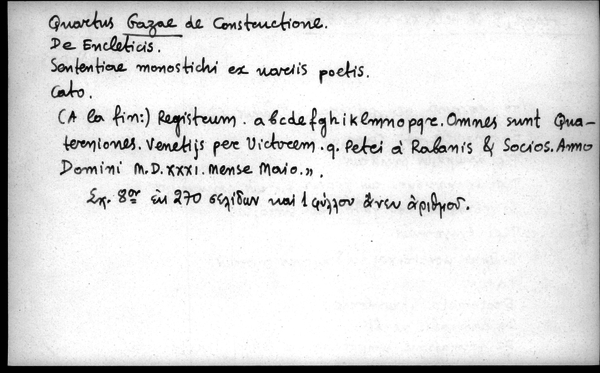 Quartus Gazae de Constructione.
De Encleticis.
Sententiae monostichi ex variis poetis.
Cato.
(A la fin:) Registrum. a b c d e f g h i k l m n o p q r. Omnes sunt Qua-
terniones. Venetijs per Victorem. q. Petri à Rabanis & Socios. Anno
Domini M.D.XXXI. Mense Maio.».
Σχ. 8ον ἐκ 270 σελίδων καὶ 1 φύλλου ἄνευ ἀριθμοῦ.